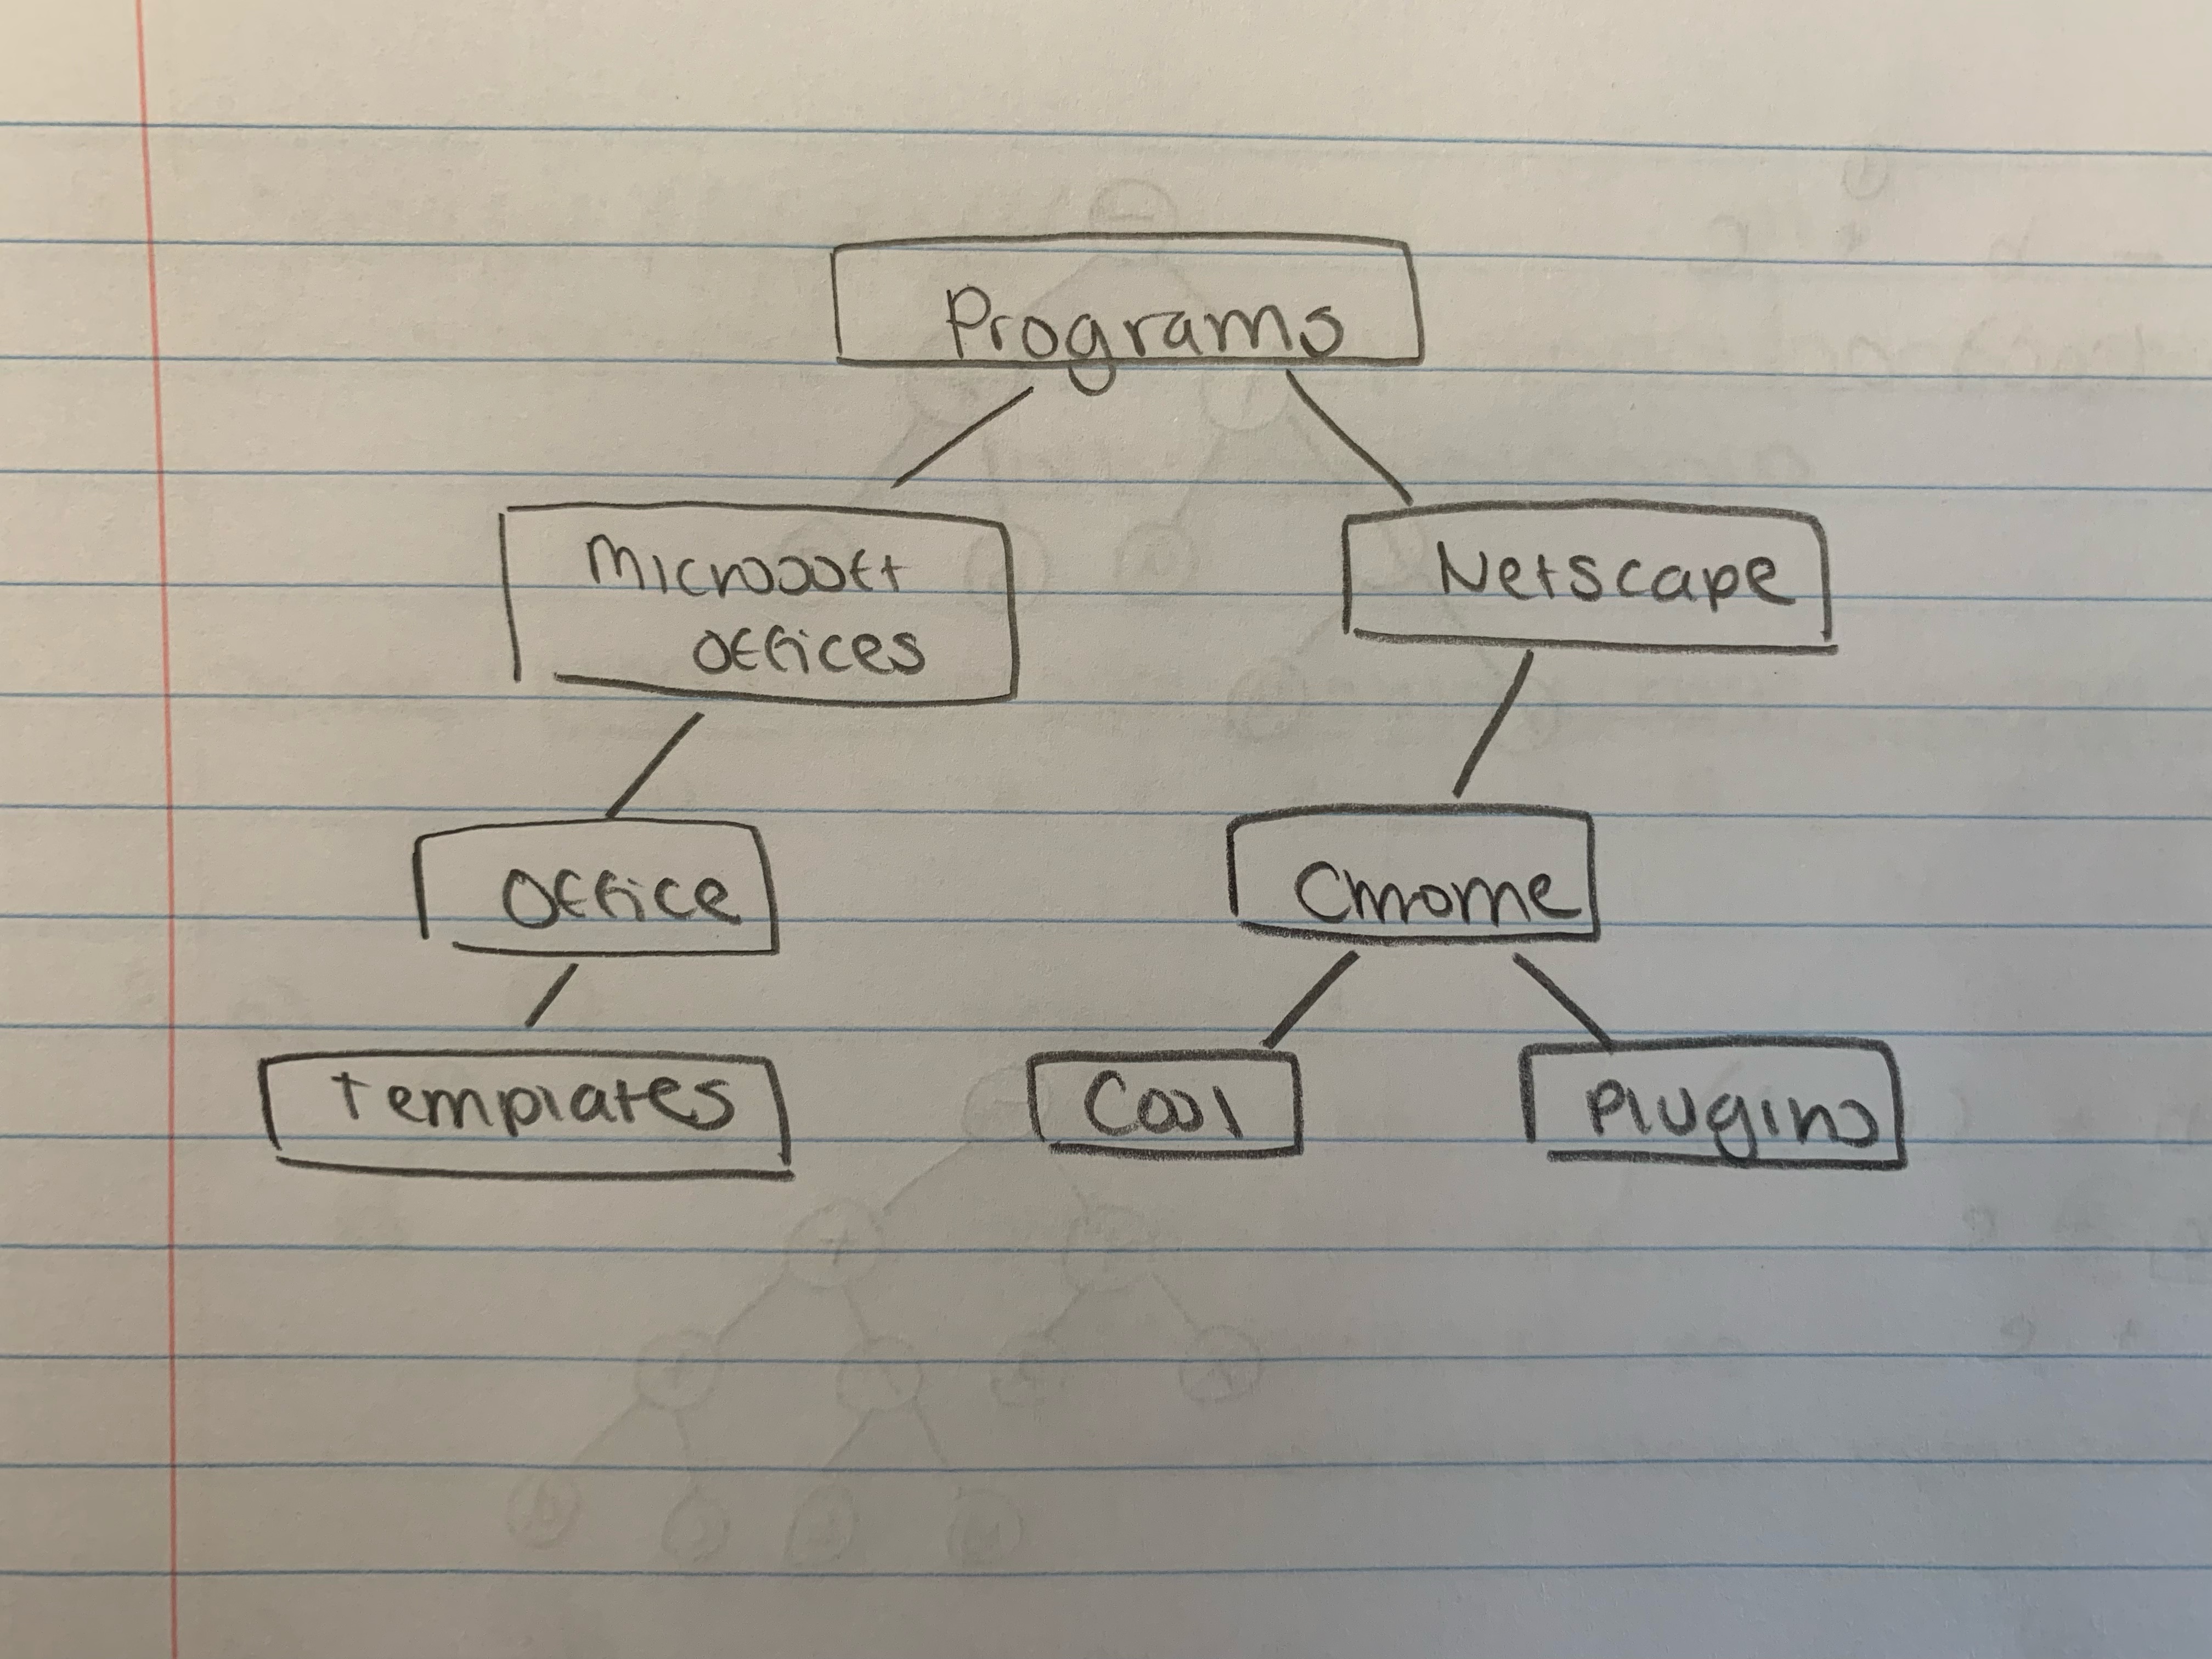 Programs
Microsoft
Offices
Netscape
Office
Chrome
Templates
Cool
Plugins